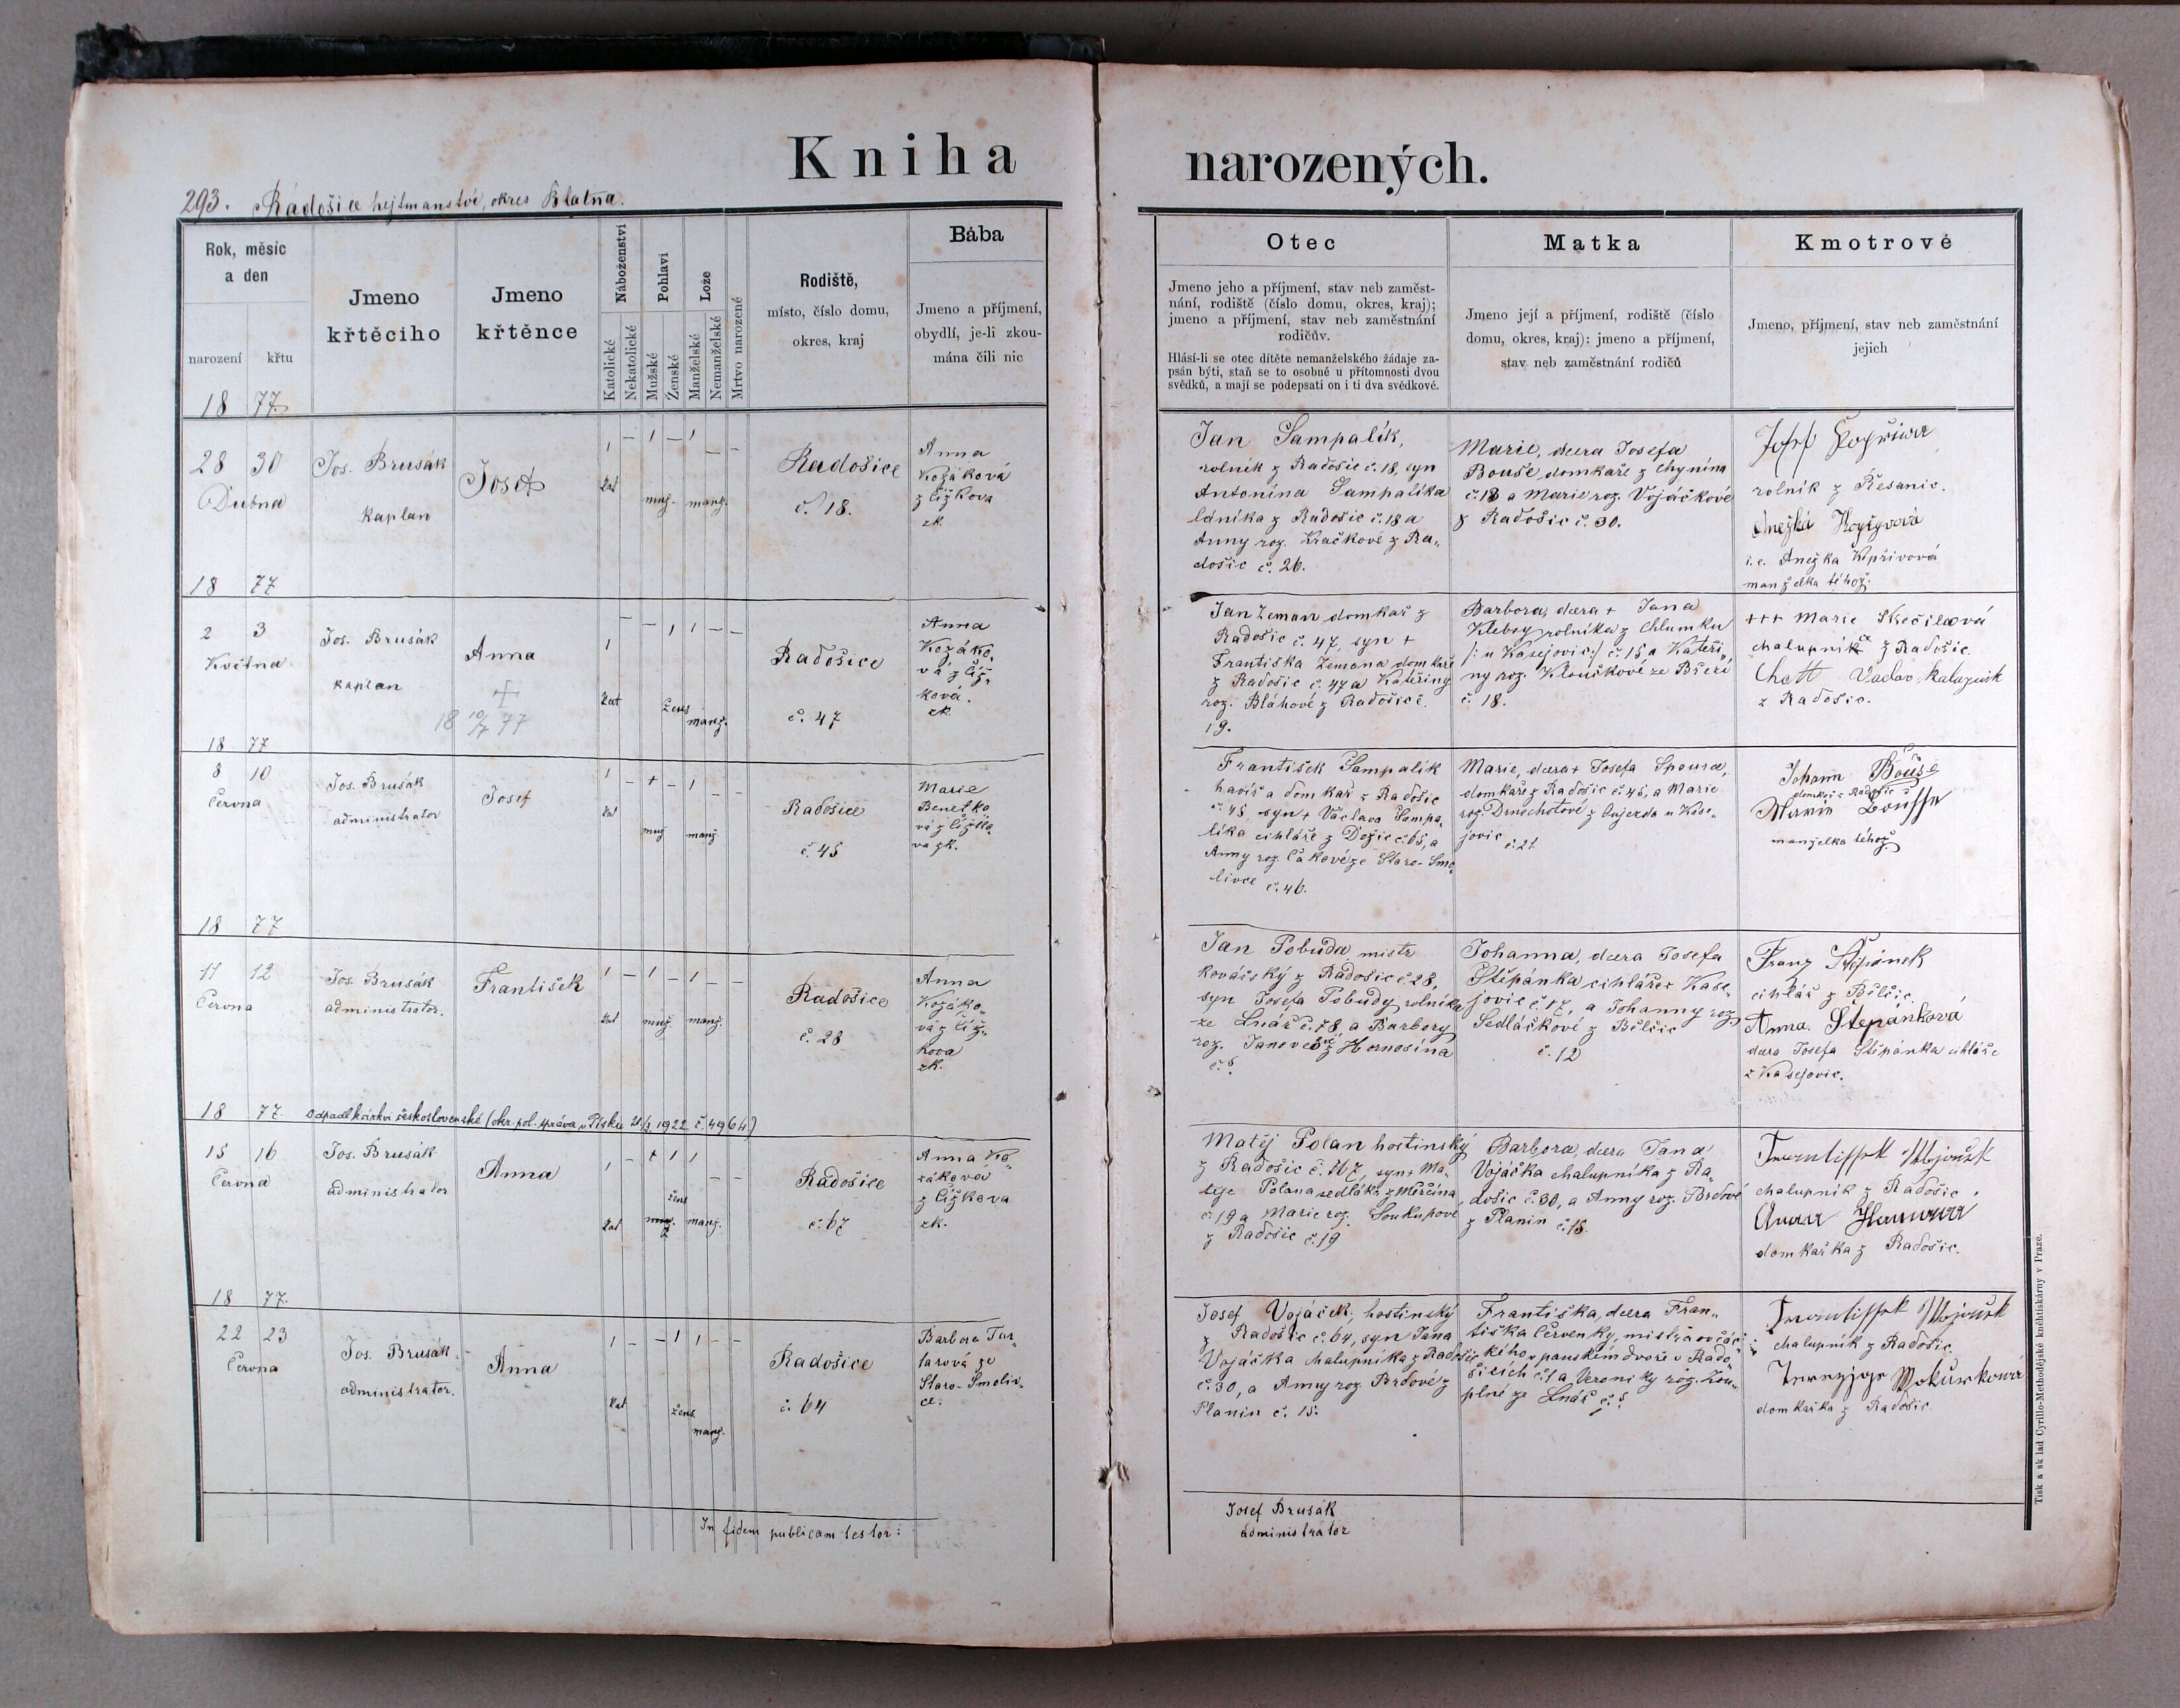 Kniha narozených.
293. Radošice hejtmanství, okres Blatna.
Rok, měsíc
a den
narození křtu
Jmeno
křtěciho
Jmeno
křtěnce
Náboženství
Katolické
Nekatolické
Pohlaví
Mužské
Ženské
Lože
Manželské
Nemanželské
Mrtvo narozené
Rodiště,
místo, číslo domu,
okres, kraj
Bába
Jmeno a příjmení,
obydlí, je-li zkou-
mána čili nic
Otec
Jmeno jeho a příjmení, stav neb zaměst-
nání, rodiště (číslo domu, okres, kraj);
jmeno a příjmení, stav neb zaměstnání
rodičův.
Hlásí-li se otec dítěte nemanželského žádaje za-
psán býti, staň se to osobně u přítomnosti dvou
svědků, a mají se podepsati on i ti dva svědkové.
Matka
Jmeno její a příjmení, rodiště (číslo
domu, okres, kraj): jmeno a příjmení,
stav neb zaměstnání rodičů
Kmotrové
Jmeno, příjmení, stav neb zaměstnání
jejich
18 77.
28 30
Dubna
Jos. Brusák
kaplan
Josef
kat
muž. manž.
Radošice
č. 18.
Anna
Kozáková
z Čížkova
zk.
Jan Sampalík,
rolník z Radošic č. 18, syn
Antonína Sampalíka
láníka z Radošic č. 18 a
Anny roz. Kračkové z Ra„
došic č. 26.
Marie, dcera Josefa
Bouše, domkaře z Chynína
č. 18 a Marie roz. Vojáčkové
z Radošic č. 30.
Josef
rolník z Řesanic.
Anežka
i. e. Anežka Kopřivová
manželka téhož.
18 77
2 3
Května
Jos. Brusák
kaplan
Anna
18 10/7 77
kat
žens
manž.
Radošice
č. 47
Anna
Kozáko„
vá z Číž„
kova.
zk.
Jan Zeman domkař z
Radošic č. 47, syn +
Františka Zemana domkaře
z Radošic č. 47 a Kateřiny
roz. Bláhové z Radošic č.
19.
Barbora, dcera + Jana
rolníka z Chlumku
/: u Kasejovic :/ č. 15 a Kateři„
ny roz. Klouškové ze
č. 18.
+++ Marie
z Radošic.
Václav
z Radošic.
18 77
8 10
Června
Jos. Brusák
administrator
Josef
kat
muž manž
Radošice
č. 45
Marie
Benetko
vá z Čížko„
va zk.
František Sampalík
havíř a domkař z Radošic
č. 45, syn + Václava Sampa„
líka cihláře z Dožic č. 65, a
Anny roz. ze Staro-Smo„
livce č. 46.
Marie, dcera + Josefa Spoura,
domkaře z Radošic č. 46, a Marie
roz. z Oujezda u Kase„
jovic č. 21.
Johann Bouše
domkař z Radošic
Bousse
manželka téhož
18 77
11 12
Června
Jos. Brusák
administrator.
František
kat muž. manž.
Radošice
č. 28
Anna
Kozáko„
vá z Číž„
kova
zk.
Jan Pobuda, mistr
kovářský z Radošic č. 28,
syn Josefa Pobudy rolníka
ze Lnář č. 78, a Barbory
roz. Janove z Hornosína
č. 8.
Johanna, dcera Josefa
Štěpánka cihláře z Kase„
jovic č. 17, a Johanny roz.
Sedláčkové z Bělčic
č. 12
Franz Štěpánek
cihlář z Bělčic.
Anna Štepánková
dcera Josefa Štěpánka cihláře
z Kasejovic.
18 77.
Odpadl k církvi československé (okr. pol. správa v Písku 1922 č. 4964)
15 16
Června
Jos. Brusák
administrator
Anna
kat
žens
muž. manž.
Radošice
č. 67
Anna Ko„
zákova
z Čížkova
zk.
Matěj Polan hostinský
z Radošic č. 67, syn + Ma„
těje Polana sedláka z Měrčína
č. 19 a Marie roz. Soukupové
z Radošic č. 19
Barbora, dcera Jana
Vojáčka chalupníka z Ra„
došic č. 30, a Anny roz. Brdové
z Planin č. 15.
chalupník z Radošic.
domkařka z Radošic.
18 77.
22 23
Června
Jos. Brusák
administrator.
Anna
kat
žens
manž.
Radošice
č. 64
Barbora
ze
Staro-Smoliv„
ce.
Josef Vojáček, hostinský
z Radošic č. 64, syn Jana
Vojáčka chalupníka z Radošic
č. 30, a Anny roz. Brdové z
Planin č. 15.
Františka, dcera Fran„
tiška Červenky, mistra ovčác„
kého v panském dvoře v Rado„
šicích č. 1 a Veroniky roz.
ze Lnář č. 8
chalupník z Radošic.
domkařka z Radošic
In fidem publicam testor:
Josef Brusák
administrator
Tisk a sklad Cyrillo-Methodějské knihtiskárny v Praze.